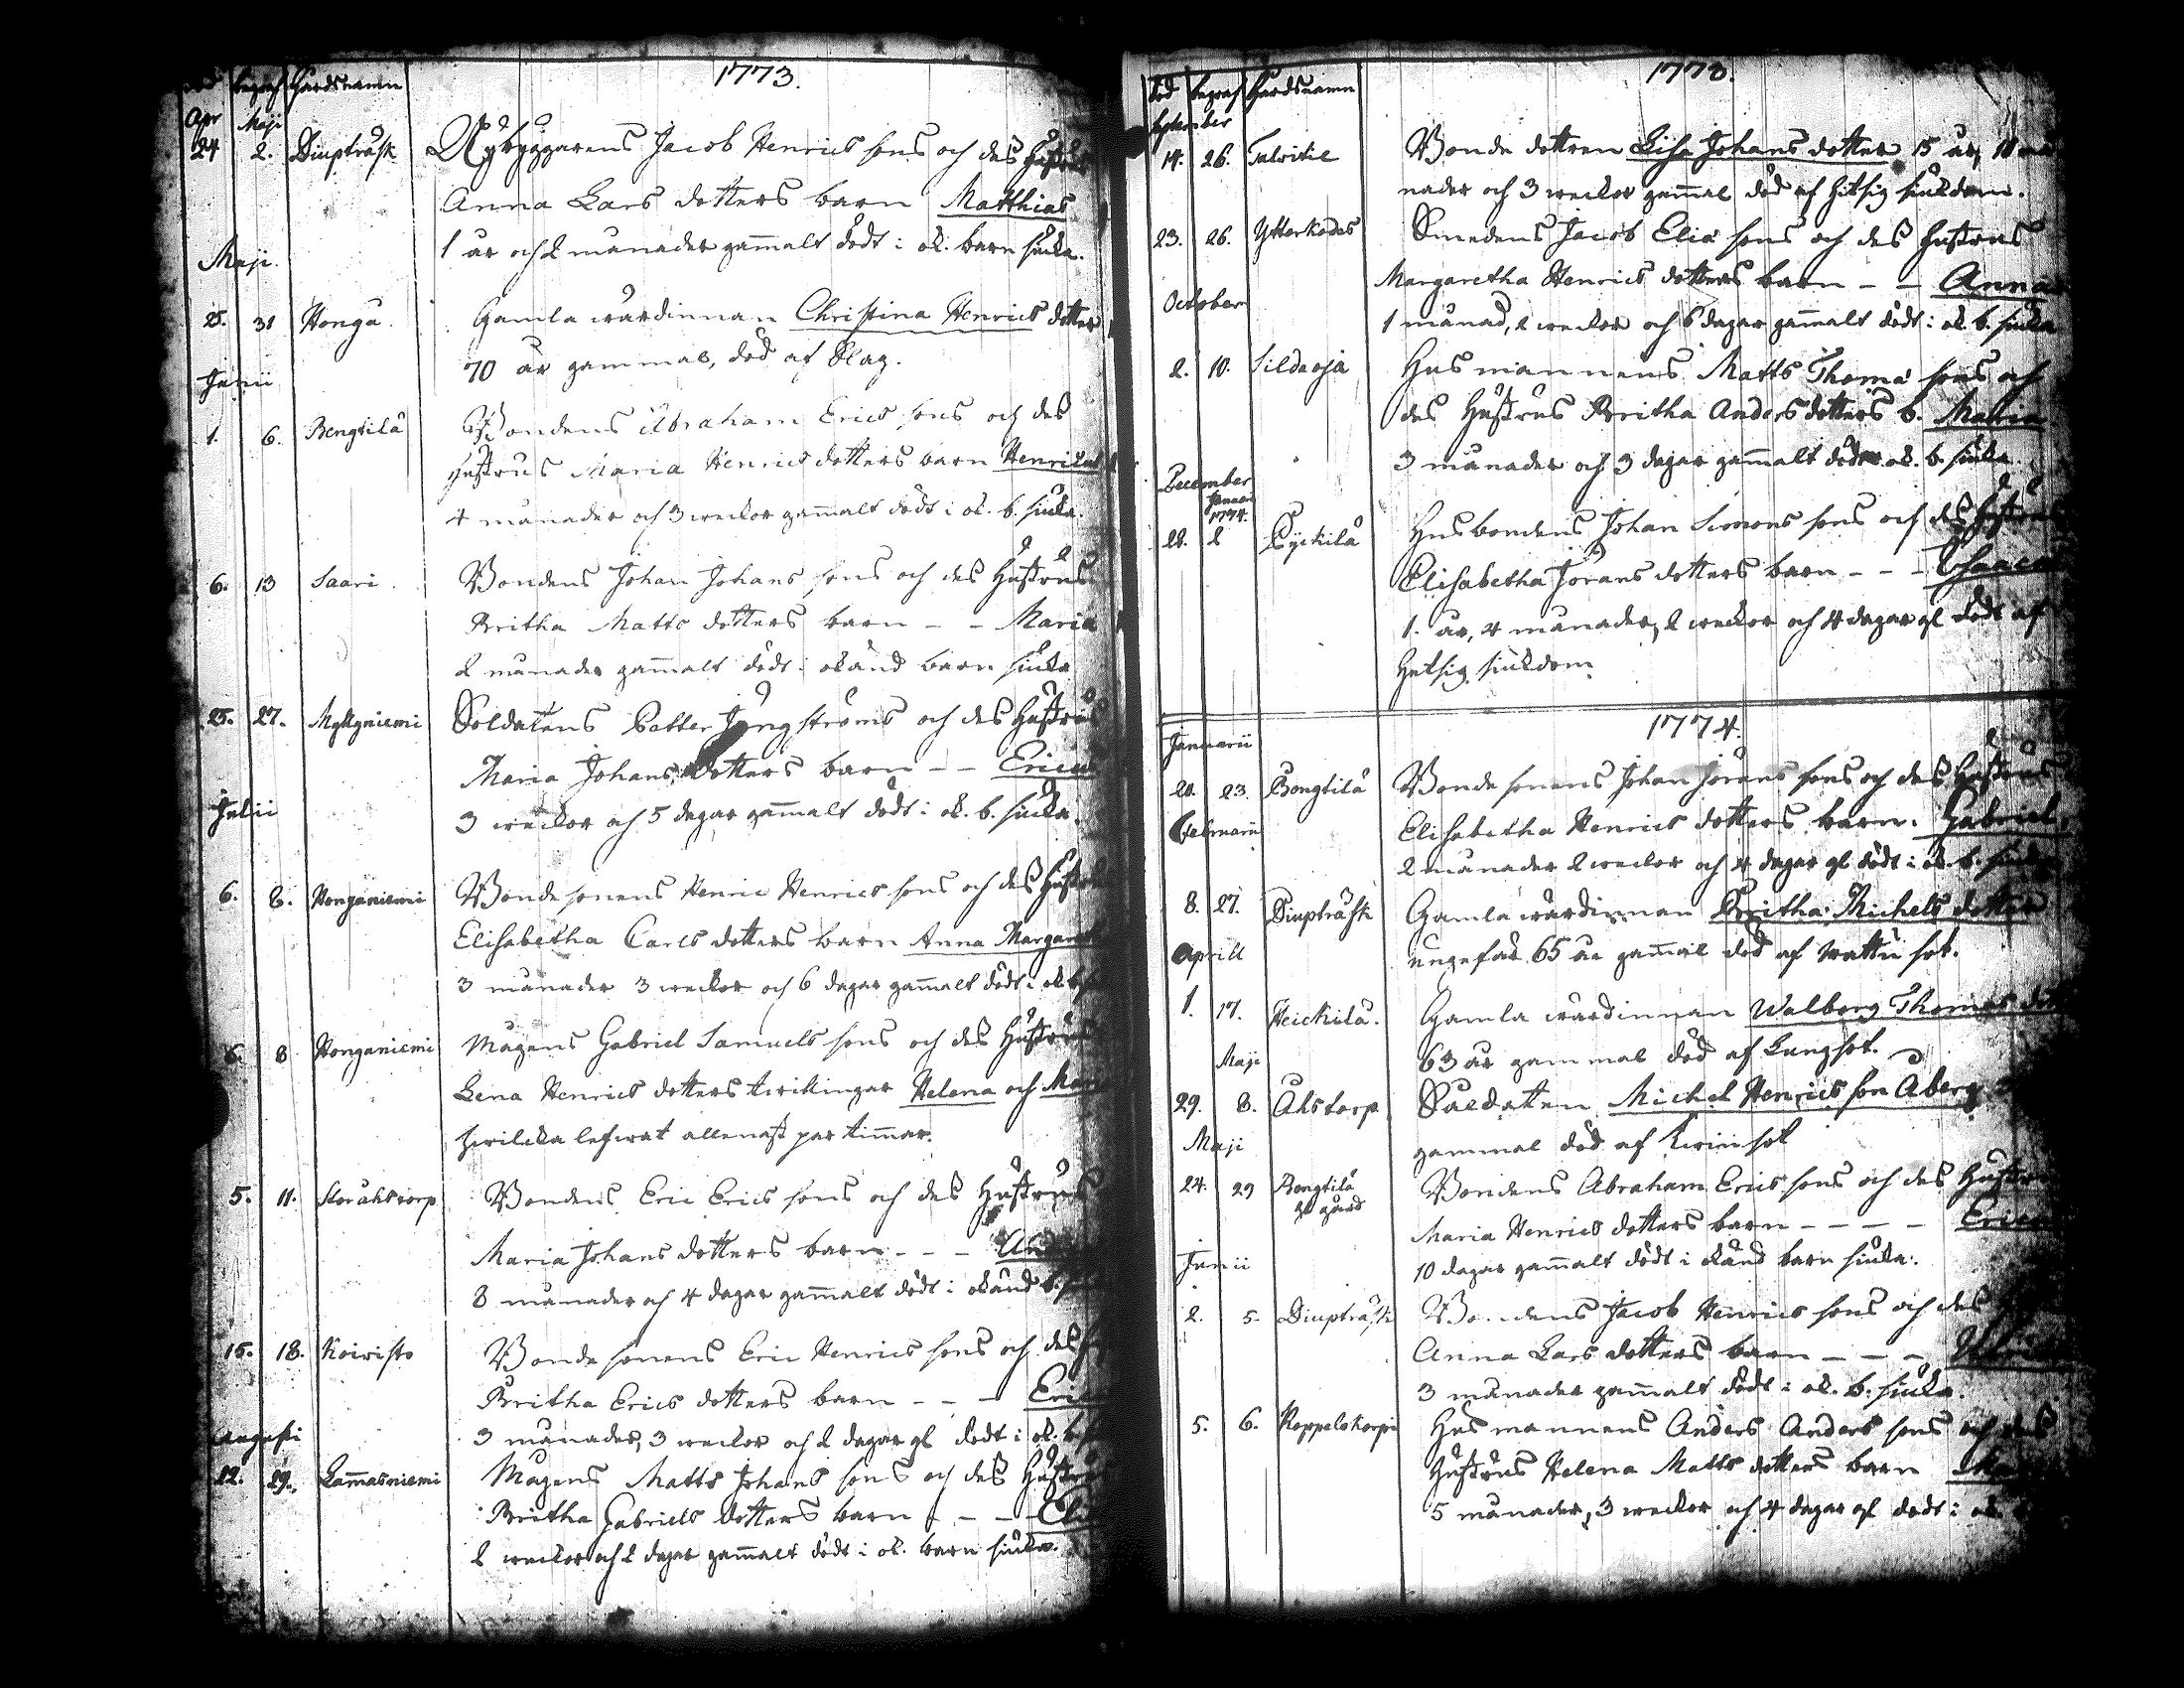 1773.
död begraf Gårdsnamn
Apr Maji
24 2. Diupträsk Nybyggarens Jacob Henrics sons och des hustrus
Anna Lars dotters barn Matthias
1 år och 2 månader gam̄alt dödt i ok. barn siuka.
Maji.
25. 31 Honga. Gamla wärdinnan Christina Henrics dotter
70 år gammal, död af Slag.
Junii
1. 6. Bengtilä Bondens Abraham Erics sons och des
hustrus Maria Henrics dotters barn
4 månader och 3 weckor gam̄alt dödt i ok. b. siuka.
6. 13 Saari. Bondens Johan Johans sons och des Hustrus
Britha Matts dotters barn - - Maria
2 månader gam̄alt dödt i okänd barn siuka
25. 27. Myllyniemi Soldatens Petter Jungströms och des Hustrus
Maria Johans dotters barn - - Ericus
3 weckor och 5 dagar gam̄alt dödt i ok. b. siuka.
Julii
6. 8. Honganiemi Bonde sonens Henric Henrics sons och des
Elisabetha Carls dotters barn Anna
3 månader 3 weckor och 6 dagar gam̄alt dödt i ok.
6. 8 Honganiemi Mågens Gabriel Samuels sons och des
Lena Henrics dotters twillingar Helena och
hwilcka lefwat allenast par tim̄ar.
5. 11. Storåhstorp Bondens Eric Erics sons och des Hustrus
Maria Johans dotters barn - - -
8 månader och 4 dagar gam̄alt dödt i okänd b.
15. 18. Koivisto Bonde sonens Eric Henrics sons och des
Britha Erics dotters barn - - -
3 månader, 3 weckor och 2 dagar gl dödt i ok.
Augusti
12. 29. Lam̄asniemi Mågens Matts Johans sons och des
Britha Gabriels dotters barn - - -
2 weckor och 2 dagar gam̄alt dödt i ok. barn siuka.
1773.
död begraf Gårdsnamn
September
14. 26. Talvitie Bonde dottren Lisa Johans dotter 15 år,
nader och 3 weckor gam̄al död af hitsig siukdom.
23. 26. Ytterkodes Smedens Jacob Eliä sons och des hustrus
Margaretha Henrics dotters barn - - Anna
October
1 månad, 2 weckor och 6 dagar gam̄alt dödt i ok. b. siuka
2. 10. Sildaoja Husmannens Matts Thomä sons och
des Hustrus Britha Anders dotters b. Maria
3 månader och 3 dagar gam̄alt dödt ok. b. siuka.
December
Januari 1774.
28. 2 Pyckilä Husbondens Johan Simons sons och des Hustrus
Elisabetha Jörans dotters barn - - -
1. år, 4 månader, 2 weckor och 4 dagar gl dödt af
Hetsig siukdom.
1774.
Januarii
20. 23. Bengtilä Bonde sonens Johan Jörans sons och des Hustrus
Februarii
Elisabetha Henrics dotters barn. Gabriel,
2 månader 2 weckor och 4 dagar gl dödt i ok. b.
8. 27. Diupträsk Gamla wärdinnan Britha Michels dotter
Aprill
ungefär 65 år gam̄al död af wattu sot.
1. 17. Heickilä. Gamla wärdinnan Walborg Thomas
63 år gammal död af Lungsot.
Maji
29. 8. Åhstorp Soldaten Michel Henrics son Åberg
Maji
gammal död af
24. 29 Bengtilä Bondens Abraham Erics sons och des
Maria Henrics dotters barn - - - -
10 dagar gam̄alt dödt i okänd barn siuka.
Junii
2. 5. Diupträsk Bondens Jacob Henrics sons och des
Anna Lars dotters barn - - -
3 månader gam̄alt dödt i ok. b. siuka.
5. 6. Koppelokorpi Husmannens Anders Anders sons och des
hustrus Helena Matts dotters barn
5 månader, 3 weckor och 4 dagar gl dödt i ok.